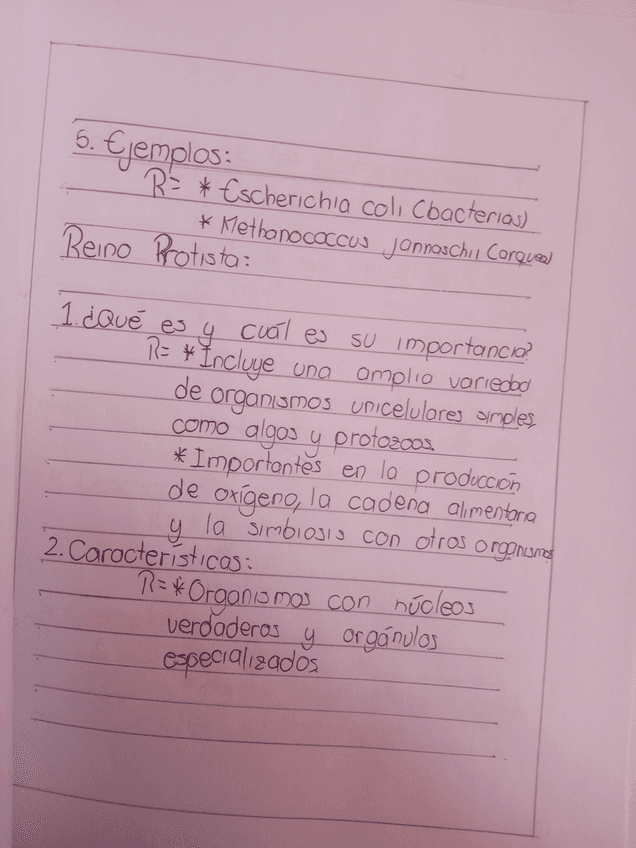 5. Ejemplos:
R= * Escherichia coli (bacterias)
* Methanococcus jannaschii (arquea)
Reino Protista:
1. ¿Qué es y cuál es su importancia?
R= * Incluye una amplia variedad
de organismos unicelulares simples,
como algas y protozoos.
* Importantes en la producción
de oxígeno, la cadena alimentaria
y la simbiosis con otros organismos
2. Características:
R= * Organismos con núcleos
verdaderos y orgánulos
especializados